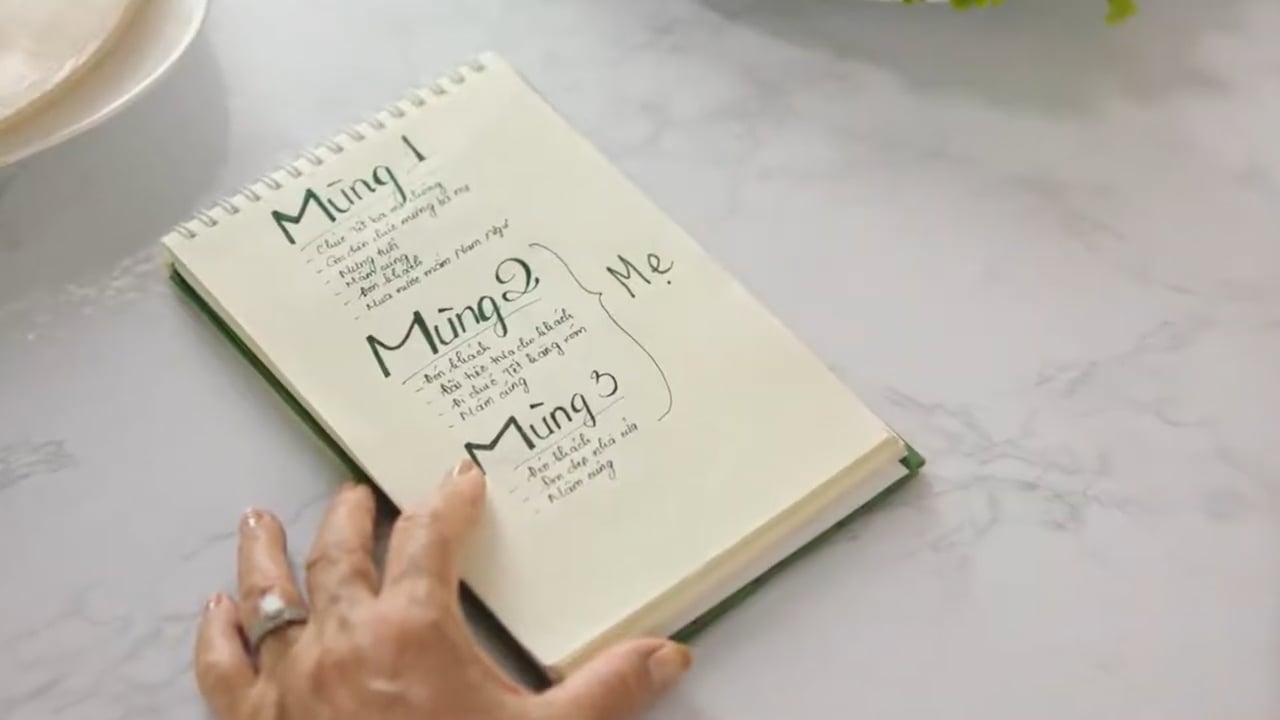 Mùng 1
- Chúc Tết ba mẹ chồng
- Con cháu chúc mừng bà mẹ
- Mừng tuổi
- Mâm cúng
- Đón khách
- Mua nước mắm Nam Ngư
Mùng 2
- Đón khách
- Đãi tiệc trưa cho khách
- Đi chúc Tết hàng xóm
- Mâm cúng
Mùng 3
- Đón khách
- Dọn dẹp nhà cửa
- Mâm cúng
Mẹ